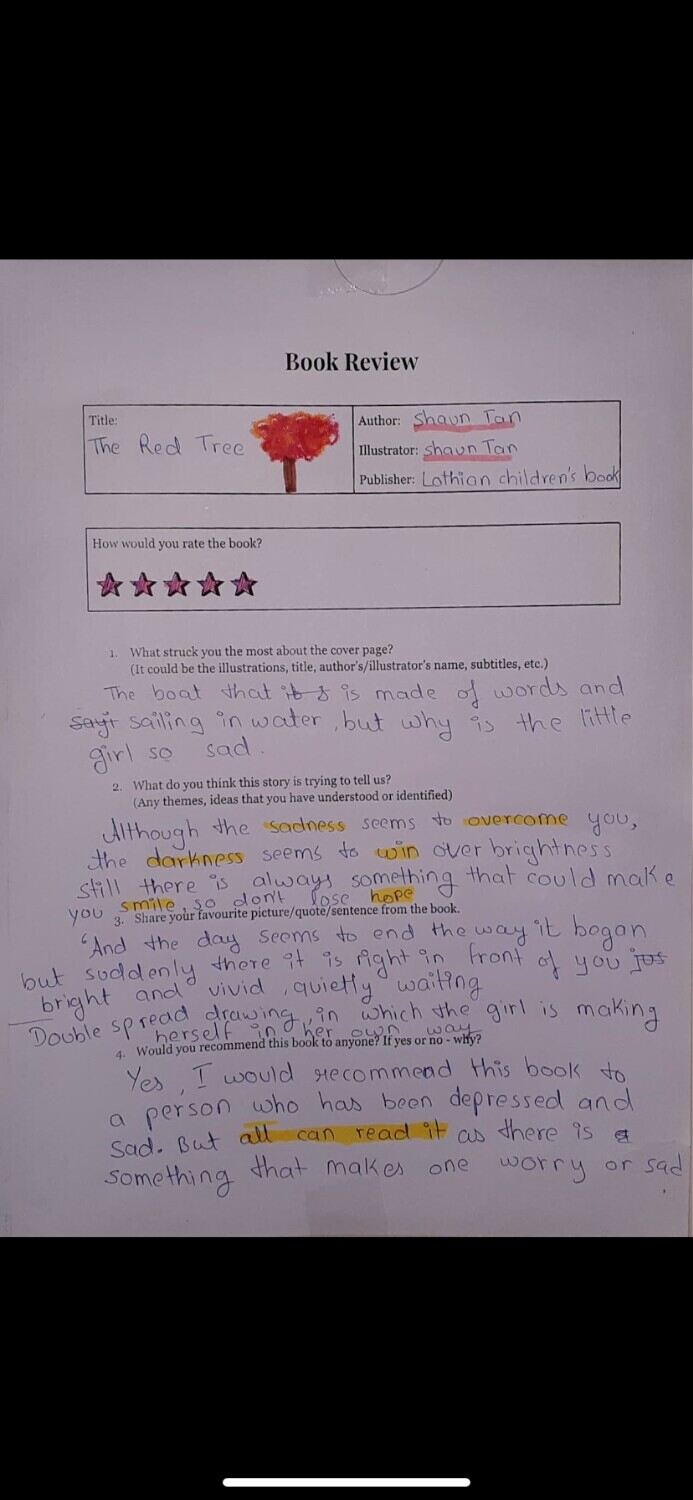 Book Review
Title:
The Red Tree
Author: Shaun Tan
Illustrator: Shaun Tan
Publisher: Lothian children's book
How would you rate the book?
1. What struck you the most about the cover page?
(It could be the illustrations, title, author's/illustrator's name, subtitles, etc.)
The boat that is made of words and
sailing in water, but why is the little
girl so sad.
2. What do you think this story is trying to tell us?
(Any themes, ideas that you have understood or identified)
Although the sadness seems to overcome you,
the darkness seems to win over brightness
still there is always something that could make
you smile, so don't lose hope
3. Share your favourite picture/quote/sentence from the book.
“And the day seems to end the way it began
but suddenly there it is right in front of you
bright and vivid, quietly waiting
Double spread drawing, in which the girl is making
herself in her own way
4. Would you recommend this book to anyone? If yes or no - why?
Yes, I would recommend this book to
a person who has been depressed and
sad. But all can read it as there is
something that makes one worry or sad
.